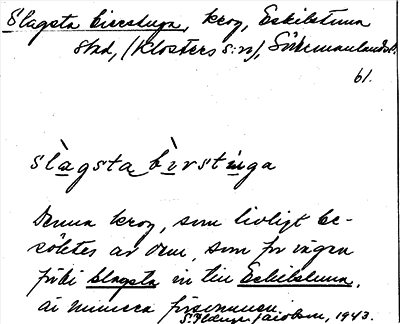 Slagsta bierstuga, krog, Eskilstuna
stad, (Klosters s:n), Södermanlands l.
61.
slàgsta bìrstùga
Denna krog, som livligt be-
söktes av dem, som for vägen
förbi Slagsta in till Eskilstuna,
är numera försvunnen.
1943.